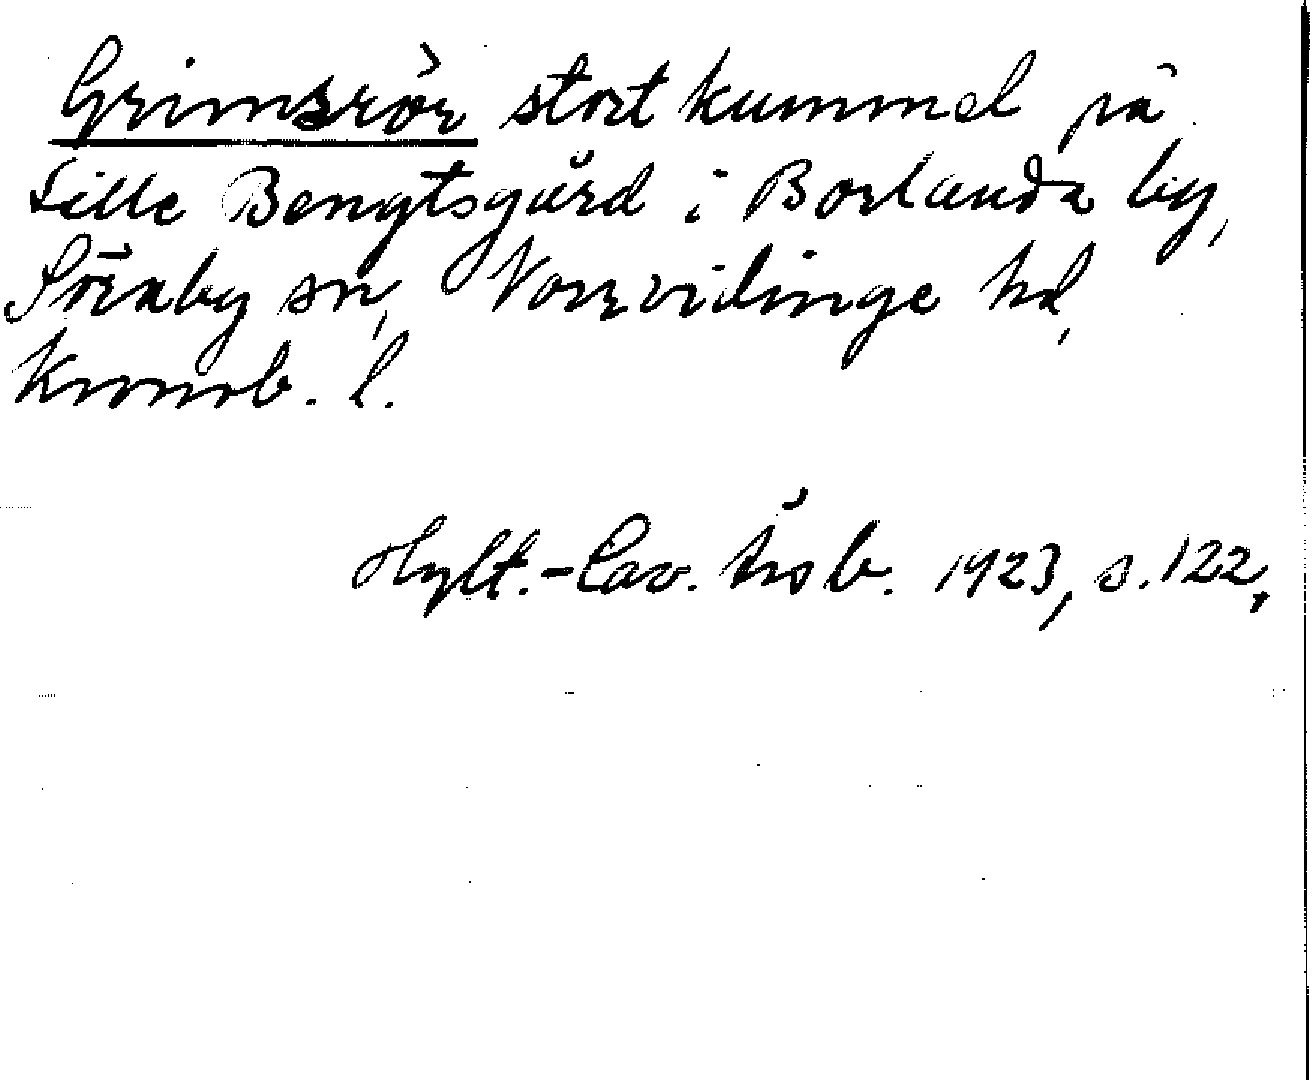 Grimsrör stort kummel på
Lille Bengtsgård i Borlanda by,
Söraby sn, Norrvidinge hd,
Kronob. l.
Hylt.-Cav. Årsb. 1923, s. 122.